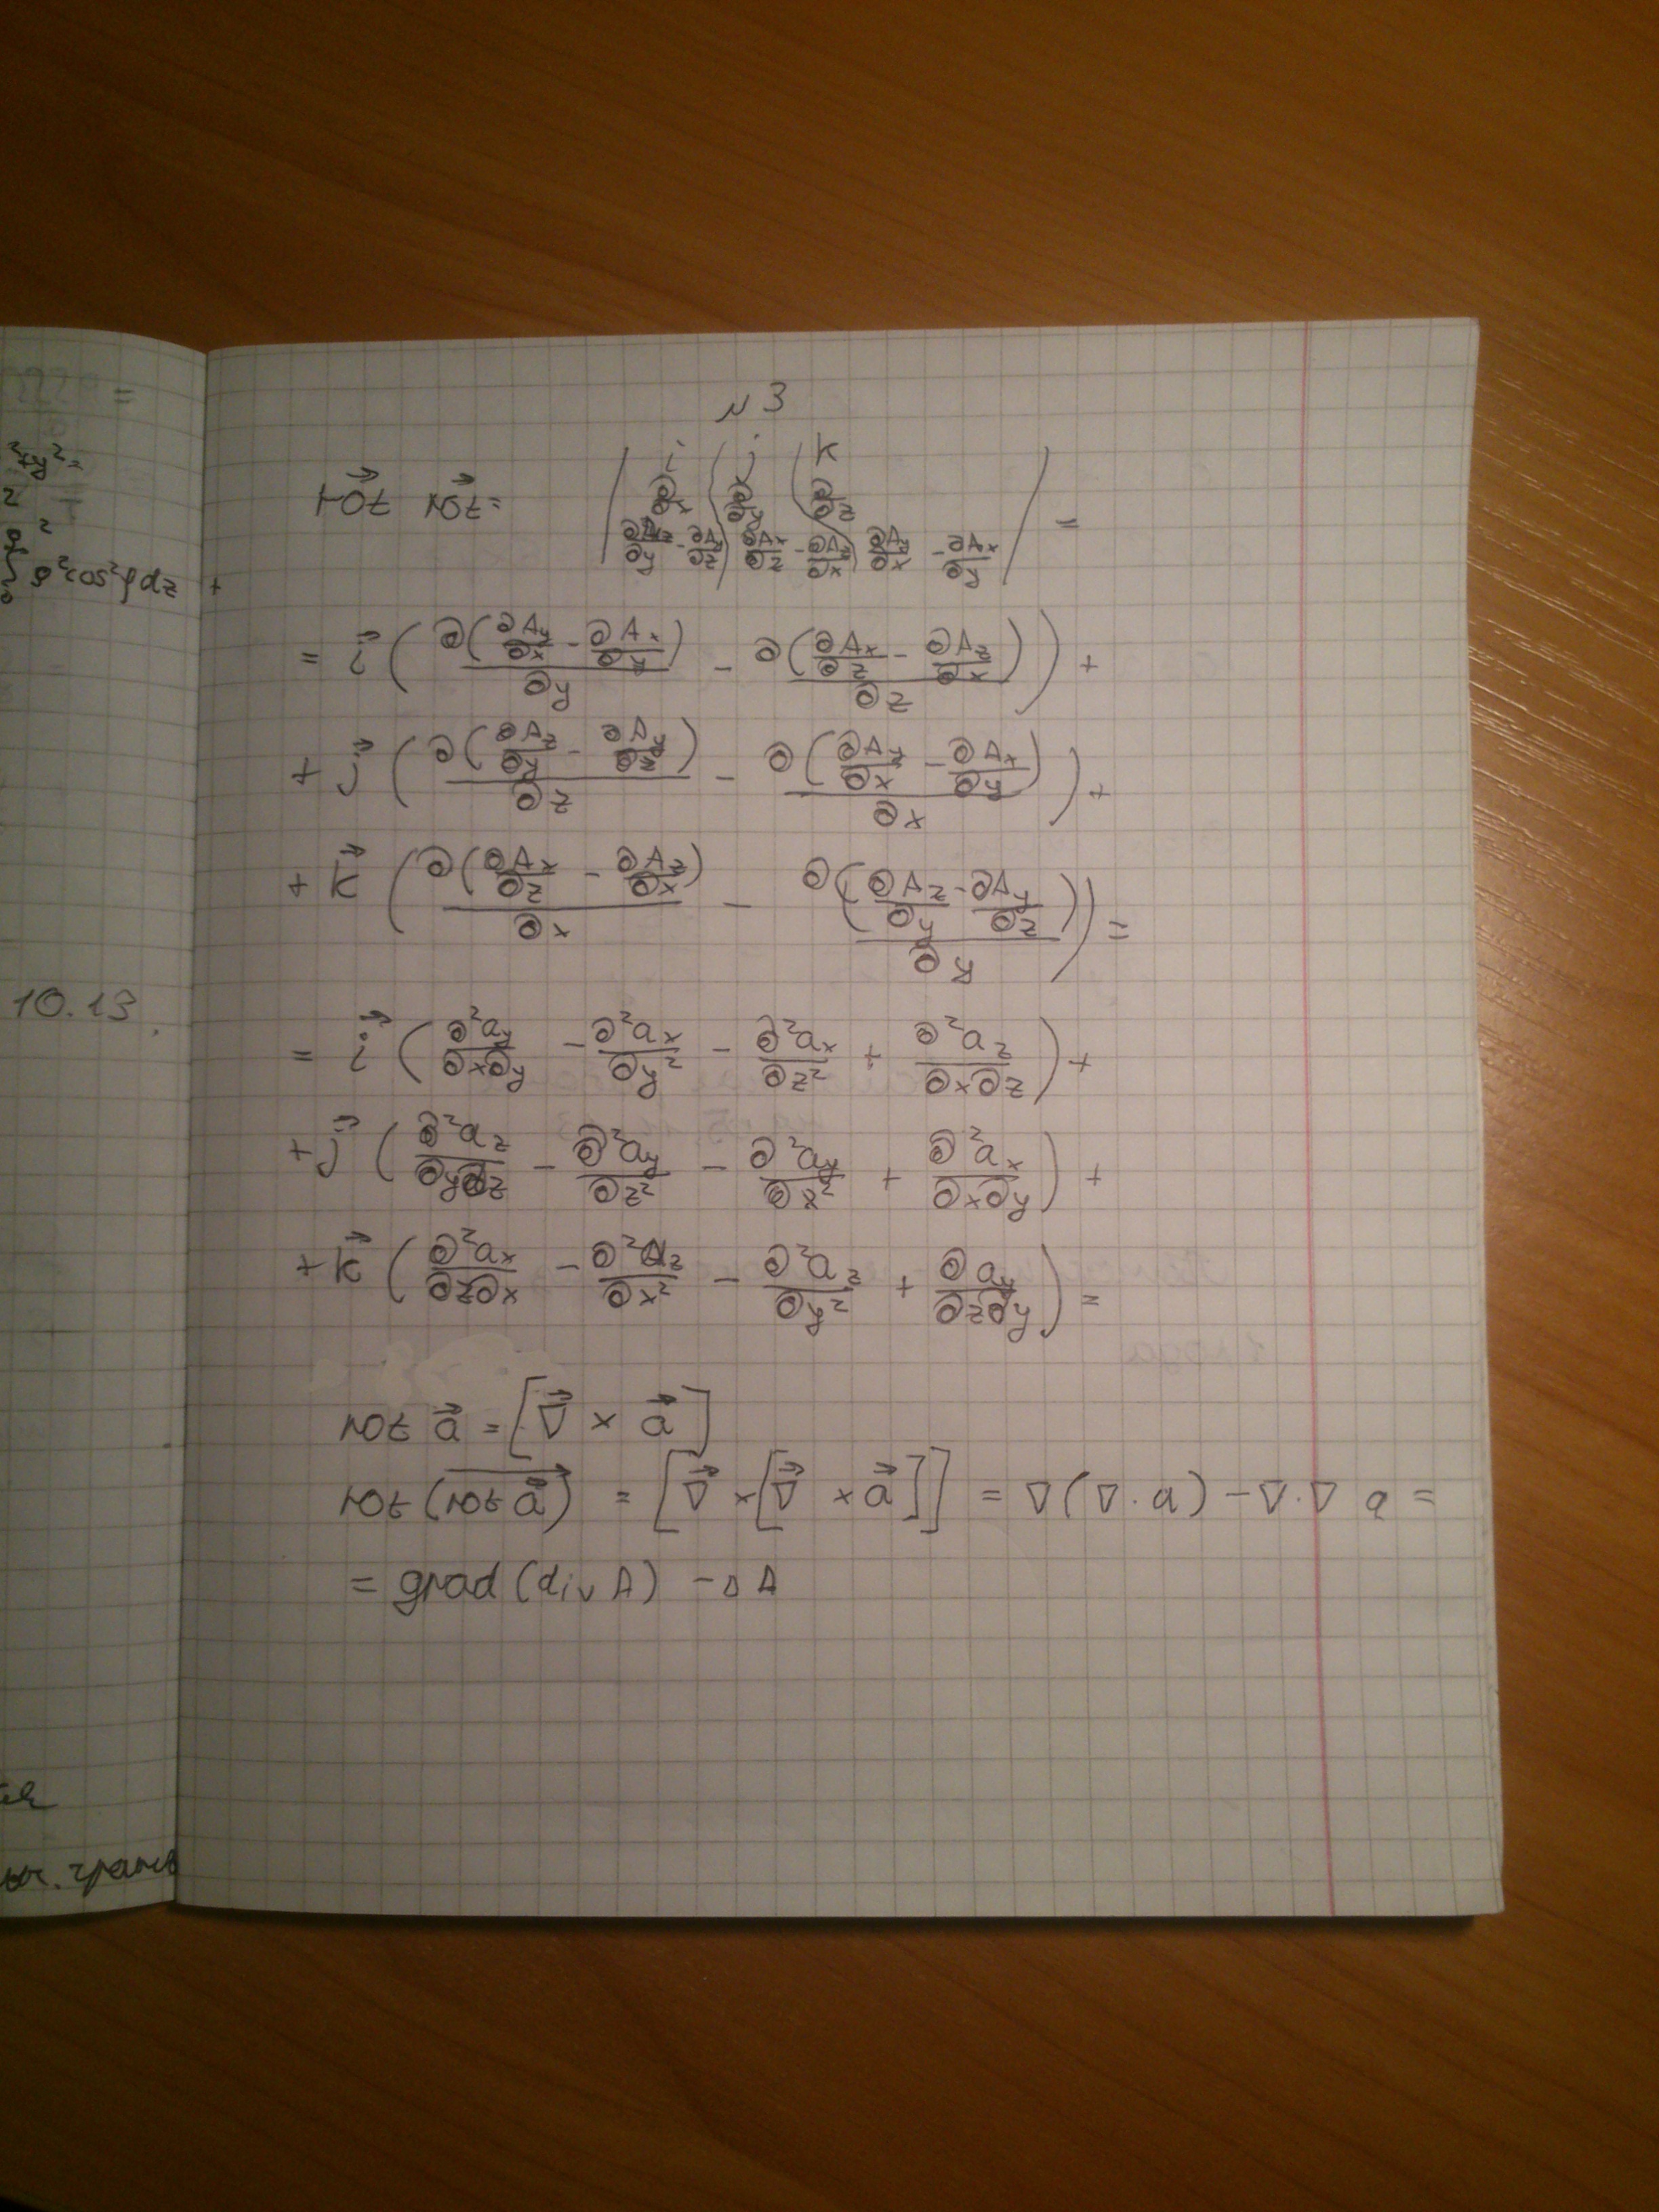 =
²+y²=
ρ²cos²φdz +
10.13.
N3
rot⃗ rot⃗ = | i j k
∂/∂x ∂/∂y ∂/∂z
∂Az/∂y - ∂Ay/∂z ∂Ax/∂z - ∂Az/∂x ∂Ay/∂x - ∂Ax/∂y | =
= i⃗ ( ∂(∂Ay/∂x - ∂Ax/∂y)/∂y - ∂(∂Ax/∂z - ∂Az/∂x)/∂z ) +
+ j⃗ ( ∂(∂Az/∂y - ∂Ay/∂z)/∂z - ∂(∂Ay/∂x - ∂Ax/∂y)/∂x ) +
+ k⃗ ( ∂(∂Ax/∂z - ∂Az/∂x)/∂x - ∂(∂Az/∂y - ∂Ay/∂z)/∂y ) =
= i⃗ ( ∂²ay/∂x∂y - ∂²ax/∂y² - ∂²ax/∂z² + ∂²az/∂x∂z ) +
+ j⃗ ( ∂²az/∂y∂z - ∂²ay/∂z² - ∂²ay/∂x² + ∂²ax/∂x∂y ) +
+ k⃗ ( ∂²ax/∂z∂x - ∂²az/∂x² - ∂²az/∂y² + ∂ay/∂z∂y ) =
rot a⃗ = [∇⃗ × a⃗]
rot (rot a⃗) = [∇⃗ × [∇⃗ × a⃗]] = ∇(∇·a) - ∇·∇ a =
= grad (div A) - ΔA